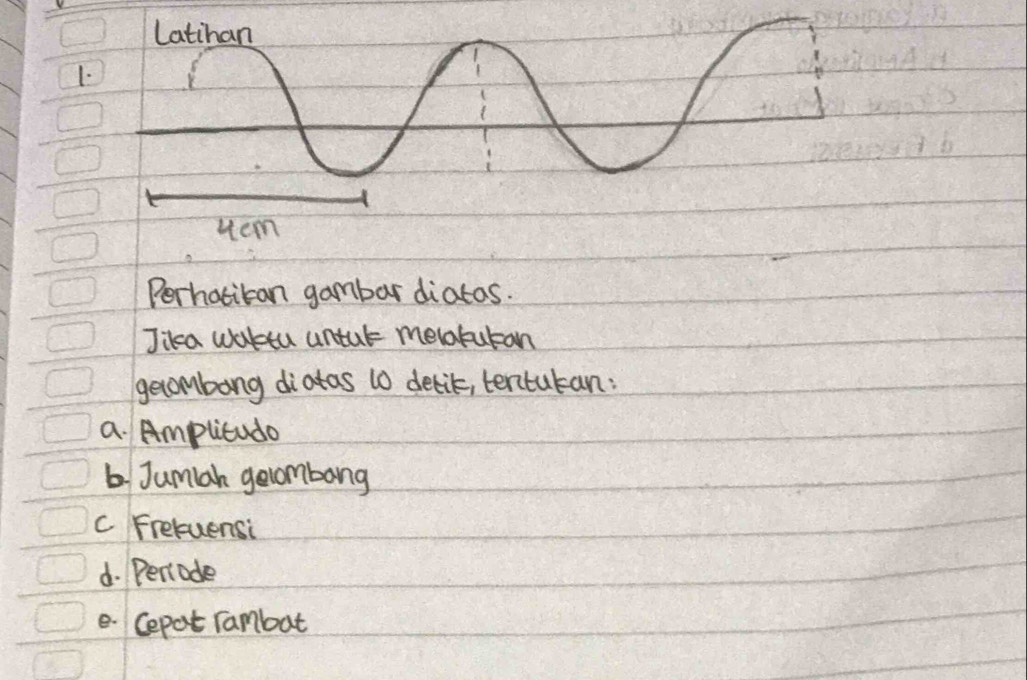 Latihan
1.
4cm
Perhatikan gambar diatas.
Jika waktu untuk melakukan
gelombang diatas 10 detik, tentukan:
a. Amplitudo
b. Jumlah gelombang
c Frekuensi
d. Periode
e. Cepat rambat